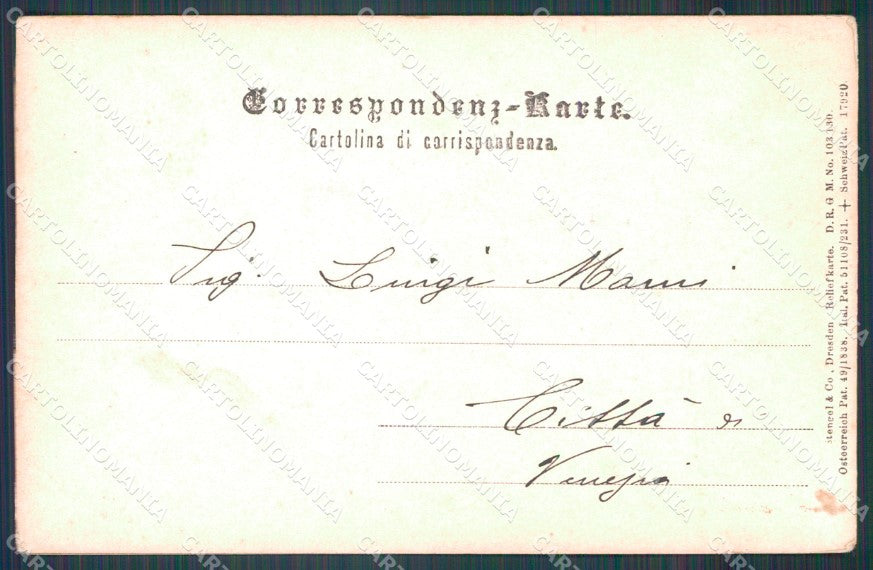 Correspondenz-Karte.
Cartolina di corrispondenza.
Sig. Luigi Manni
Città di
Venezia
Stengel & Co., Dresden Reliefkarte. D. R. G. M. No. 103130.
Oesterreich Pat. 49/1838. Ital. Pat. 51108/231. + Schweiz Pat. 17920
CARTOLINOMANIA